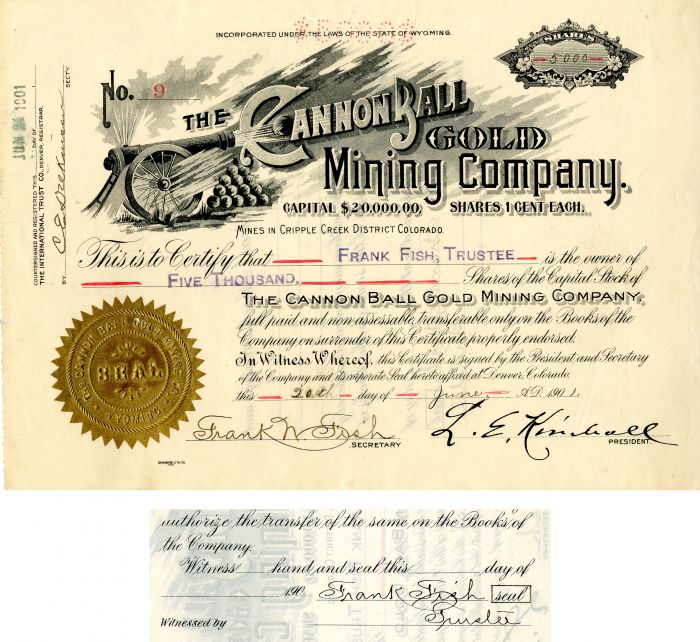 INCORPORATED UNDER THE LAWS OF THE STATE OF WYOMING.
SHARES
5000
No. 9
THE CANNON BALL
GOLD
Mining Company.
CAPITAL $20,000.00, SHARES, 1 CENT EACH.
MINES IN CRIPPLE CREEK DISTRICT COLORADO.
This is to Certify that FRANK FISH, TRUSTEE is the owner of
FIVE THOUSAND. Shares of the Capital Stock of
THE CANNON BALL GOLD MINING COMPANY,
full paid and non assessable, transferable only on the Books of the
Company on surrender of this Certificate properly endorsed.
In Witness Whereof, this Certificate is signed by the President and Secretary
of the Company and its corporate Seal hereto affixed at Denver, Colorado.
this 20th day of June, A.D. 1901.
Frank N. Fish L. E. Kimball
SECRETARY PRESIDENT.
JUN 24 1901
COUNTERSIGNED AND REGISTERED THIS DAY OF
THE INTERNATIONAL TRUST CO., DENVER, REGISTRAR.
BY SECTY.
THE CANNON BALL GOLD MINING CO.
SEAL
WYOMING
authorize the transfer of the same on the Books of
the Company.
Witness hand and seal this day of
190 Frank Fish seal
Trustee
Witnessed by